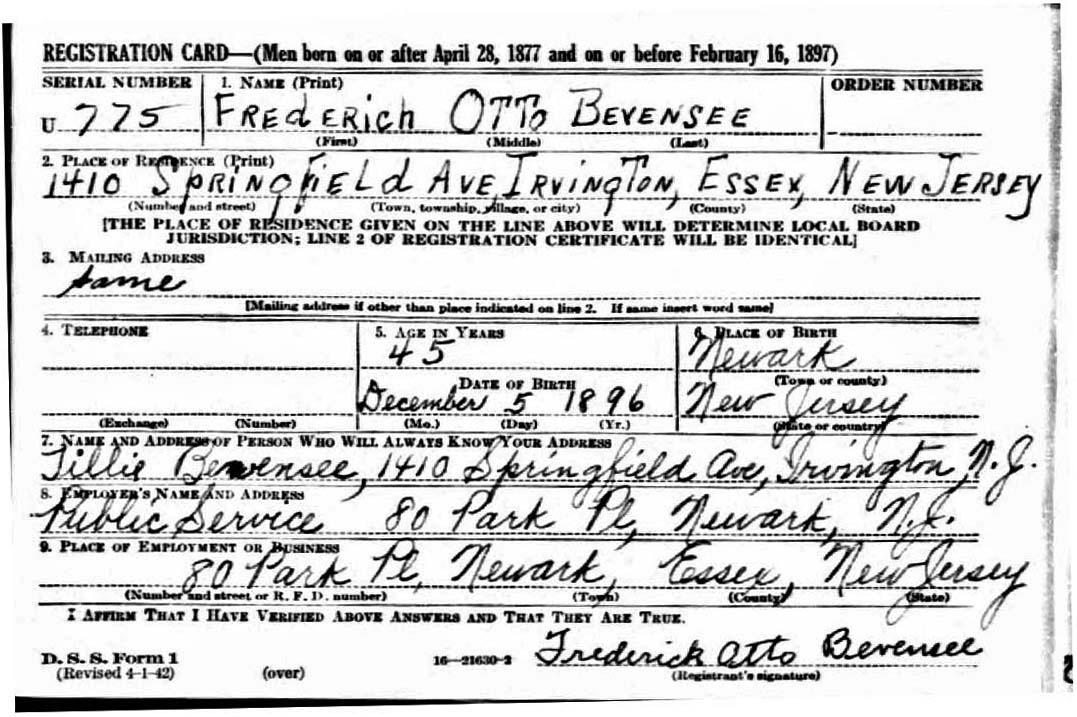 REGISTRATION CARD—(Men born on or after April 28, 1877 and on or before February 16, 1897)
SERIAL NUMBER 1. NAME (Print) ORDER NUMBER
U 775 FREdERICh OTTo BEVENSEE
(First) (Middle) (Last)
2. PLACE OF RESIDENCE (Print)
1410 SpRINGfiELd AVE, IRVINGTON, ESSEX, NEW JERSEY
(Number and street) (Town, township, village, or city) (County) (State)
[THE PLACE OF RESIDENCE GIVEN ON THE LINE ABOVE WILL DETERMINE LOCAL BOARD
JURISDICTION; LINE 2 OF REGISTRATION CERTIFICATE WILL BE IDENTICAL]
3. MAILING ADDRESS
same
[Mailing address if other than place indicated on line 2. If same insert word same]
4. TELEPHONE 5. AGE IN YEARS 6. PLACE OF BIRTH
45 Newark
DATE OF BIRTH (Town or county)
December 5 1896 New Jersey
(Exchange) (Number) (Mo.) (Day) (Yr.) (State or country)
7. NAME AND ADDRESS OF PERSON WHO WILL ALWAYS KNOW YOUR ADDRESS
Tillie Bevensee, 1410 Springfield Ave, Irvington, N.J.
8. EMPLOYER'S NAME AND ADDRESS
Public Service 80 Park Pl, Newark, N.J.
9. PLACE OF EMPLOYMENT OR BUSINESS
80 Park Pl, Newark, Essex, New Jersey
(Number and street or R. F. D. number) (Town) (County) (State)
I AFFIRM THAT I HAVE VERIFIED ABOVE ANSWERS AND THAT THEY ARE TRUE.
D. S. S. Form 1 16—21630-2 Frederick Otto Bevensee
(Revised 4-1-42) (over) (Registrant's signature)